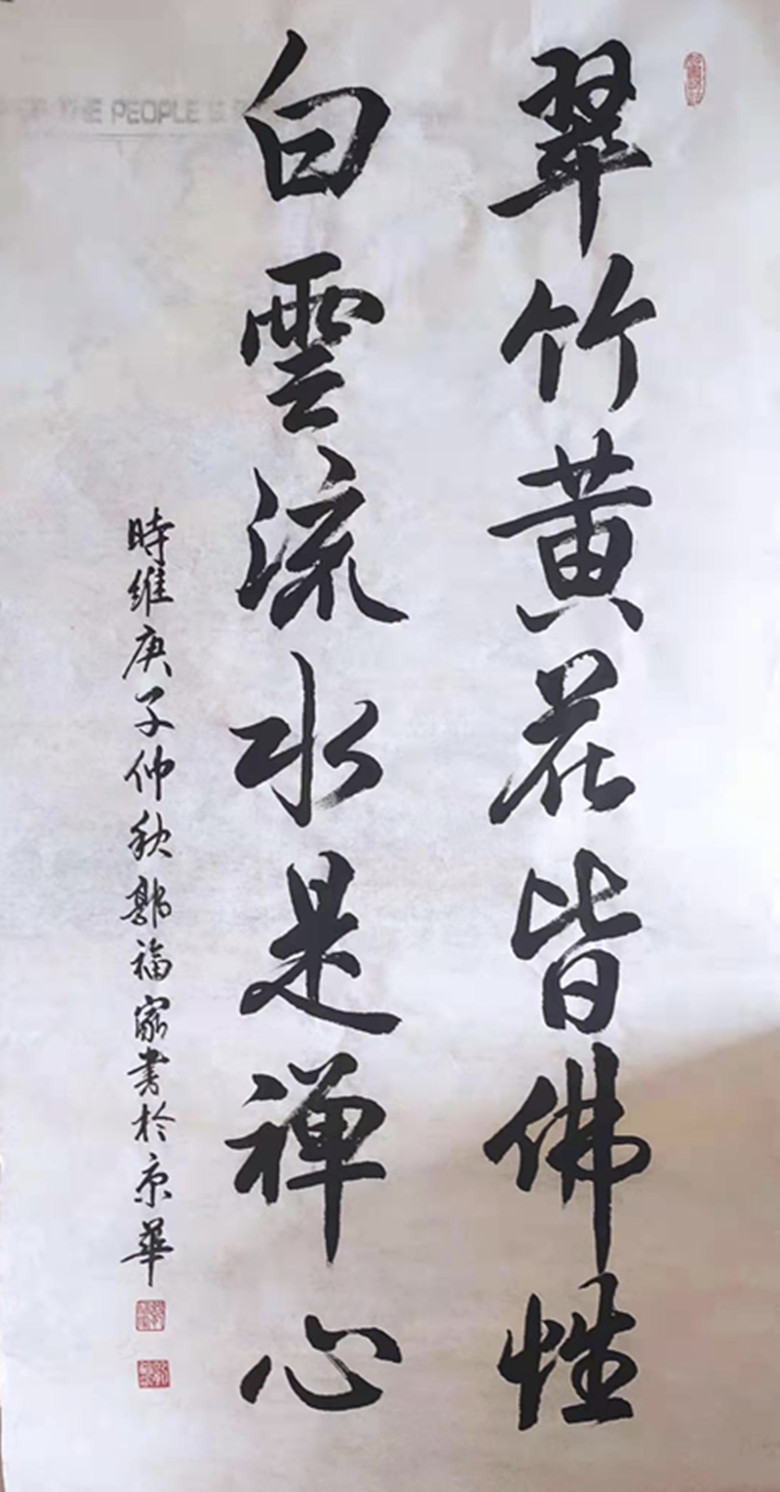 翠竹黄花皆佛性
白雲流水是禅心
時維庚子仲秋郭福家書於京華
THE PEOPLE'S